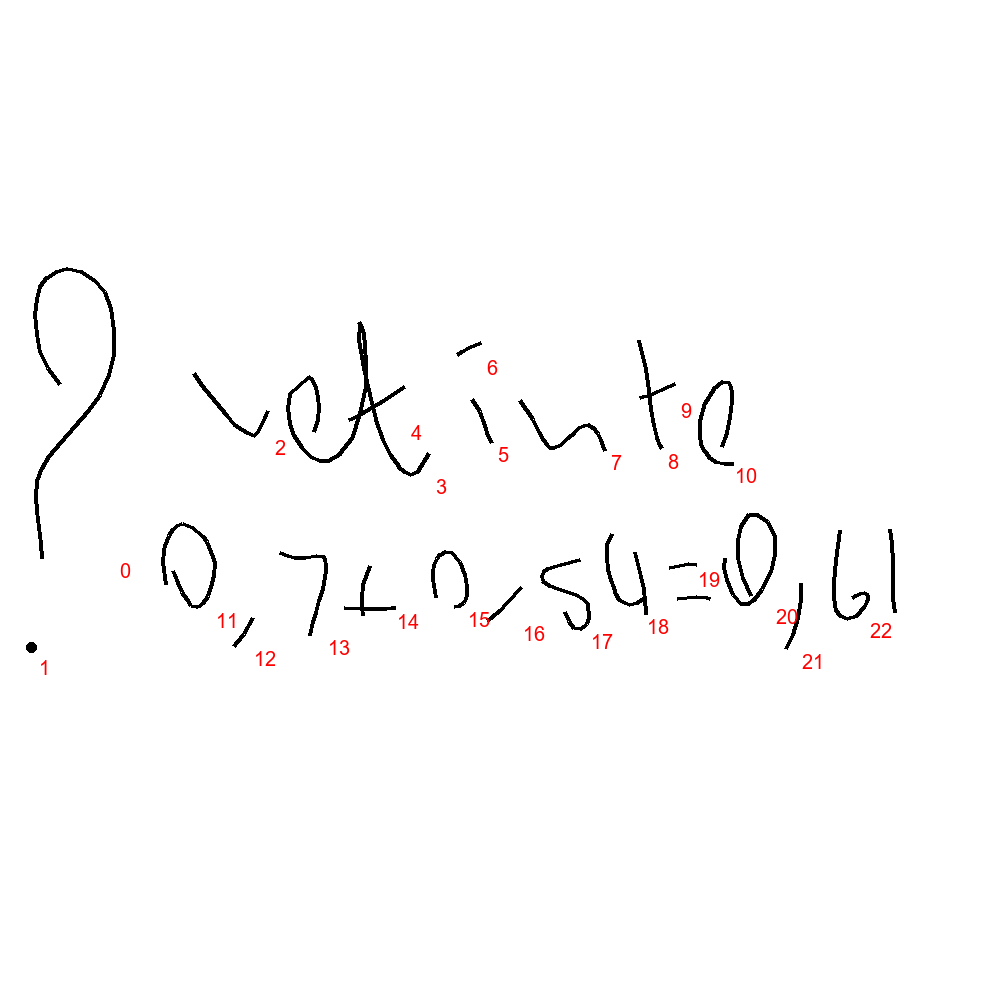 ? vet inte
0,7+0,54=0,61
0 1 2 3 4 5 6 7 8 9 10 11 12 13 14 15 16 17 18 19 20 21 22